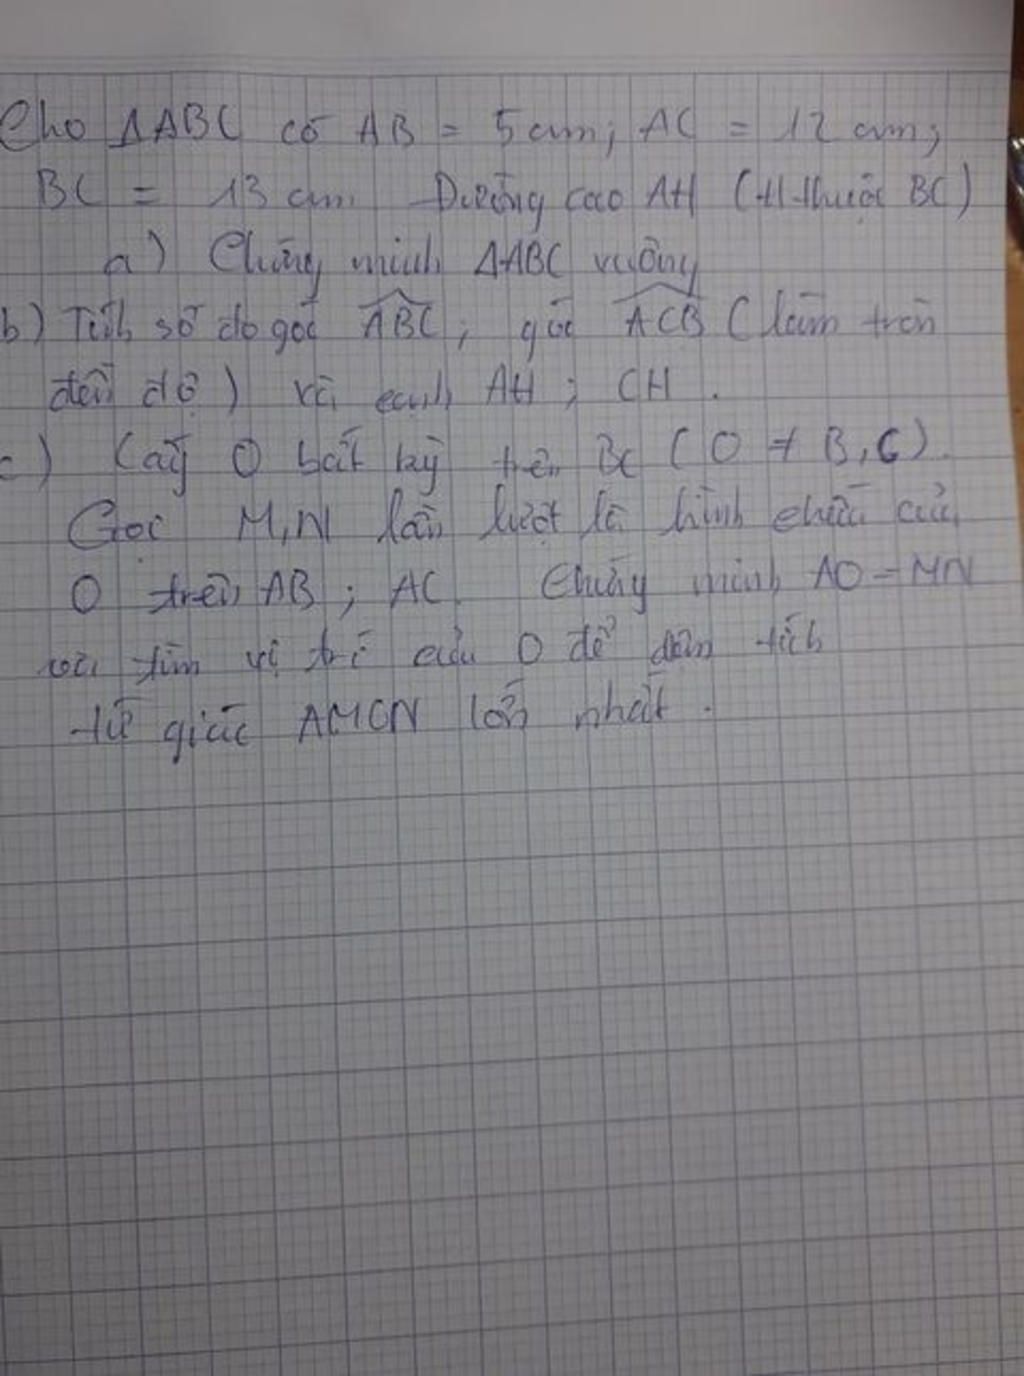 Cho ΔABC có AB = 5cm; AC = 12 cm;
BC = 13 cm. Đường cao AH (H thuộc BC)
a) Chứng minh ΔABC vuông
b) Tính số đo góc ABC; góc ACB (làm tròn
đến độ) và cạnh AH; CH.
c) Lấy O bất kỳ trên BC (O ≠ B, C).
Gọi M,N lần lượt là hình chiếu của
O trên AB; AC. Chứng minh AO = MN
và tìm vị trí của O để diện tích
tứ giác AMON lớn nhất.